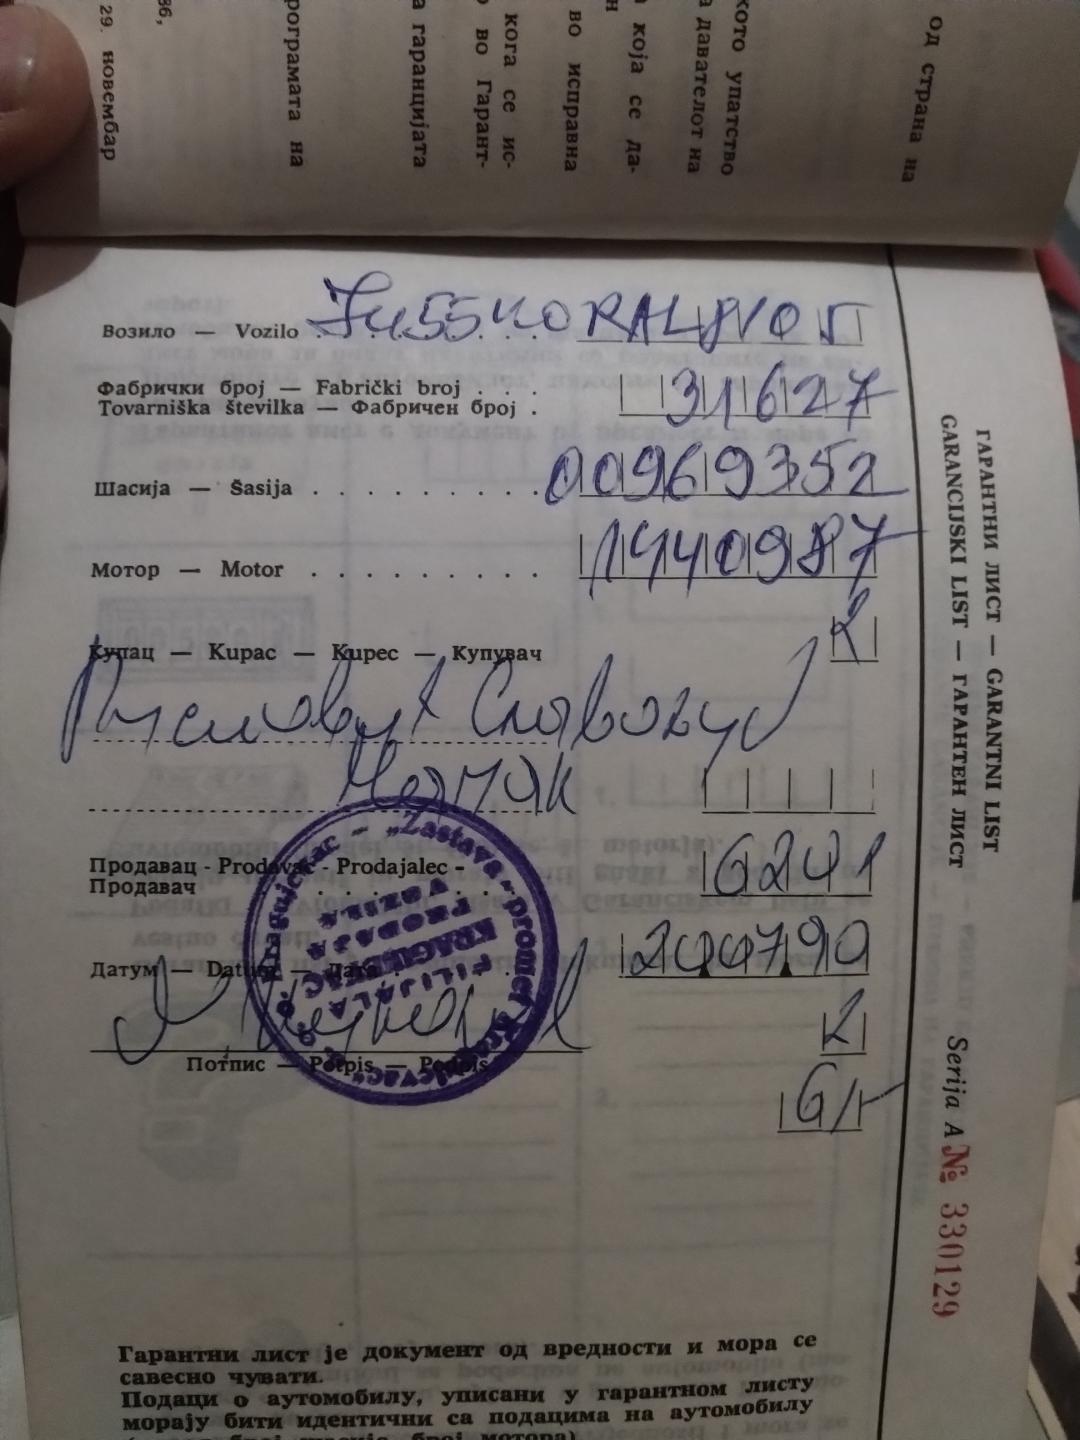 од страна на
кото упатство
а давателот на
а која се да-
во исправна
кога се ис-
о во Гарант-
а гаранцијата
рограмата на
86,
29. новембар
Возило — Vozilo . Ju 55 KORAL
Фабрички број — Fabrički broj . . .
Tovarniška številka — Фабричен број . 31627
Шасија — Šasija . . . . . . . . . . 00969352
Мотор — Motor . . . . . . . . . . 1440987
Купац — Kupac — Kupec — Купувач
Продавац - Prodavac - Prodajalec -
Продавач 6201
Датум — Datum — Дата . 200790
Потпис — Potpis — Podpis
„Zastava-promet
FILIJALA
KRAGUJEVAC
PRODAJA
VOZILA
ГАРАНТНИ ЛИСТ — GARANTNI LIST
GARANCIJSKI LIST — ГАРАНТЕН ЛИСТ
Serija A № 330129
Гарантни лист је документ од вредности и мора се
савесно чувати.
Подаци о аутомобилу, уписани у гарантном листу
морају бити идентични са подацима на аутомобилу